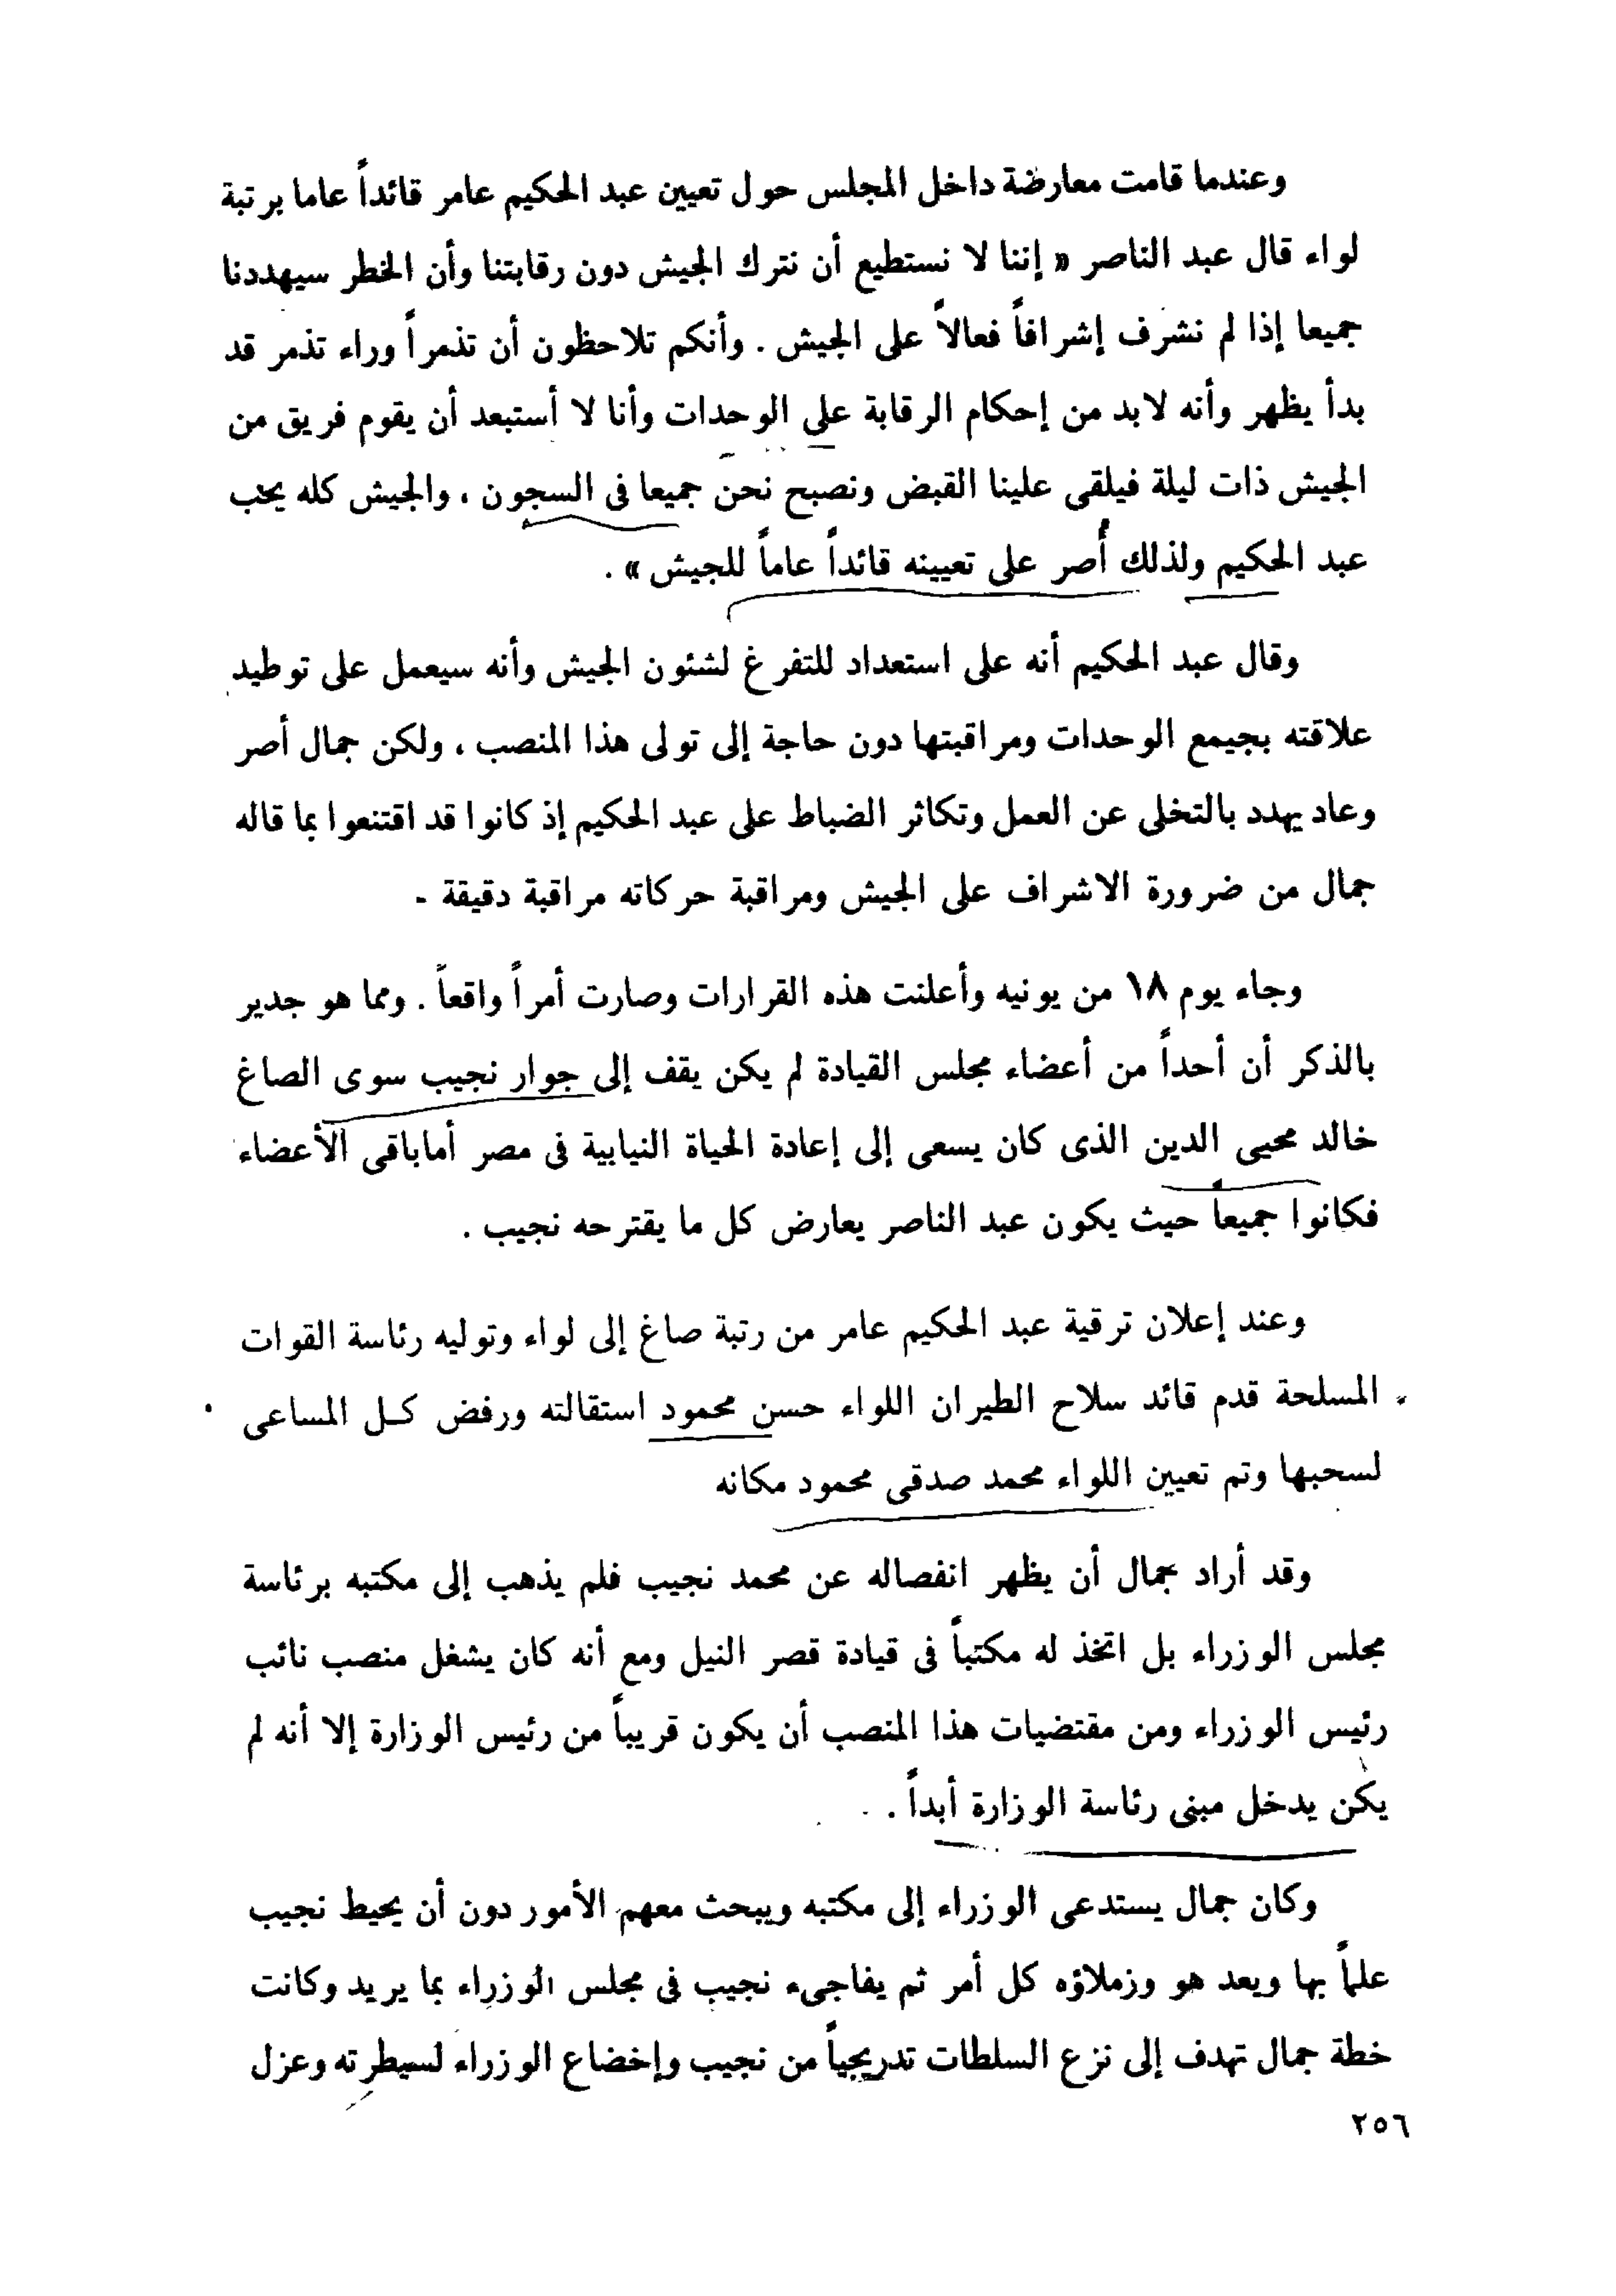 وعندما قامت معارضة داخل المجلس حول تعيين عبد الحكيم عامر قائداً عاما برتبة
لواء قال عبد الناصر « إننا لا نستطيع أن نترك الجيش دون رقابتنا وأن الخطر سيهددنا
جميعا إذا لم نشرف إشرافاً فعالاً على الجيش . وأنكم تلاحظون أن تذمراً وراء تذمر قد
بدأ يظهر وأنه لابد من إحكام الرقابة على الوحدات وأنا لا أستبعد أن يقوم فريق من
الجيش ذات ليلة فيلقى علينا القبض ونصبح نحن جميعا فى السجون ، والجيش كله يحب
عبد الحكيم ولذلك أُصر على تعيينه قائداً عاماً للجيش » .
وقال عبد الحكيم أنه على استعداد للتفرغ لشئون الجيش وأنه سيعمل على توطيد
علاقته بجيمع الوحدات ومراقبتها دون حاجة إلى تولى هذا المنصب ، ولكن جمال أصر
وعاد يهدد بالتخلى عن العمل وتكاثر الضباط على عبد الحكيم إذ كانوا قد اقتنعوا بما قاله
جمال من ضرورة الاشراف على الجيش ومراقبة حركاته مراقبة دقيقة -
وجاء يوم ١٨ من يونيه وأعلنت هذه القرارات وصارت أمراً واقعاً . ومما هو جدير
بالذكر أن أحداً من أعضاء مجلس القيادة لم يكن يقف إلى جوار نجيب سوى الصاغ
خالد محيى الدين الذى كان يسعى إلى إعادة الحياة النيابية فى مصر أماباقى الأعضاء
فكانوا جميعاً حيث يكون عبد الناصر يعارض كل ما يقترحه نجيب .
وعند إعلان ترقية عبد الحكيم عامر من رتبة صاغ إلى لواء وتوليه رئاسة القوات
المسلحة قدم قائد سلاح الطيران اللواء حسن محمود استقالته ورفض كـل المساعى
لسحبها وتم تعيين اللواء محمد صدقى محمود مكانه
وقد أراد جمال أن يظهر انفصاله عن محمد نجيب فلم يذهب إلى مكتبه برئاسة
مجلس الوزراء بل اتخذ له مكتباً فى قيادة قصر النيل ومع أنه كان يشغل منصب نائب
رئيس الوزراء ومن مقتضيات هذا المنصب أن يكون قريباً من رئيس الوزارة إلا أنه لم
يكن يدخل مبنى رئاسة الوزارة أبداً .
وكان جمال يستدعى الوزراء إلى مكتبه ويبحث معهم الأمور دون أن يحيط نجيب
علماً بها ويعد هو وزملاؤه كل أمر ثم يفاجىء نجيب فى مجلس الوزراء بما يريد وكانت
خطة جمال تهدف إلى نزع السلطات تدريجياً من نجيب وإخضاع الوزراء لسيطرته وعزل
٢٥٦